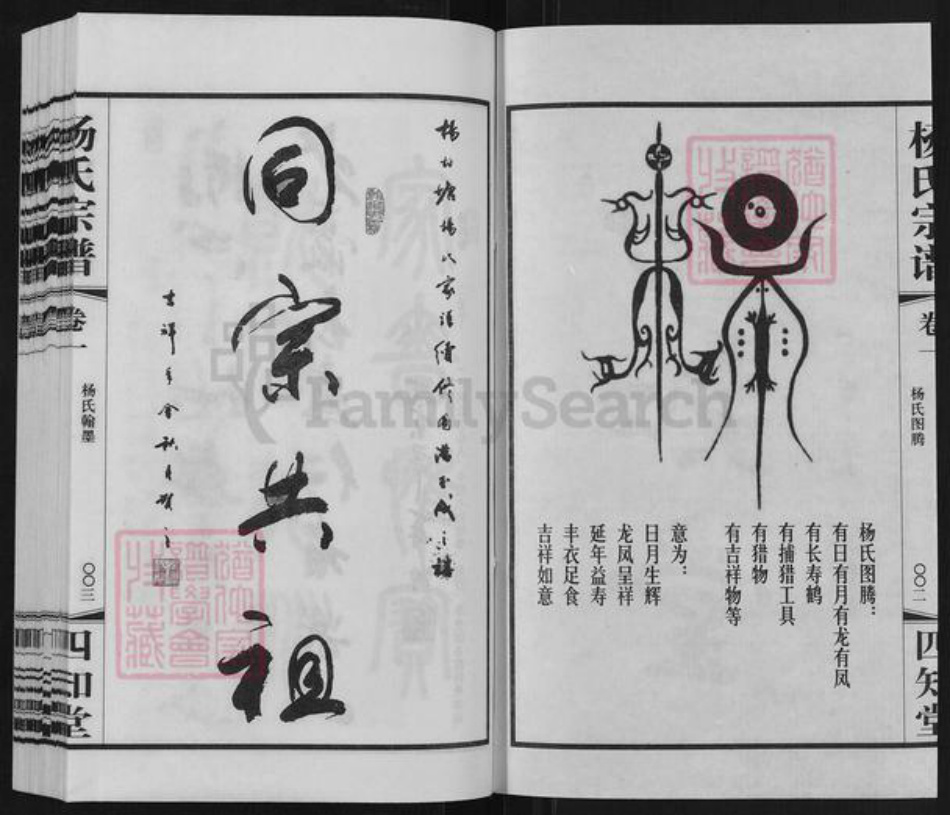 杨氏宗谱
卷一
杨氏图腾
〇〇二
四知堂
杨氏图腾：
有日有月有龙有凤
有长寿鹤
有捕猎工具
有猎物
有吉祥物等
意为：
日月生辉
龙凤呈祥
延年益寿
丰衣足食
吉祥如意
同宗共祖
杨氏宗谱
卷一
杨氏翰墨
〇〇三
四知堂
FamilySearch